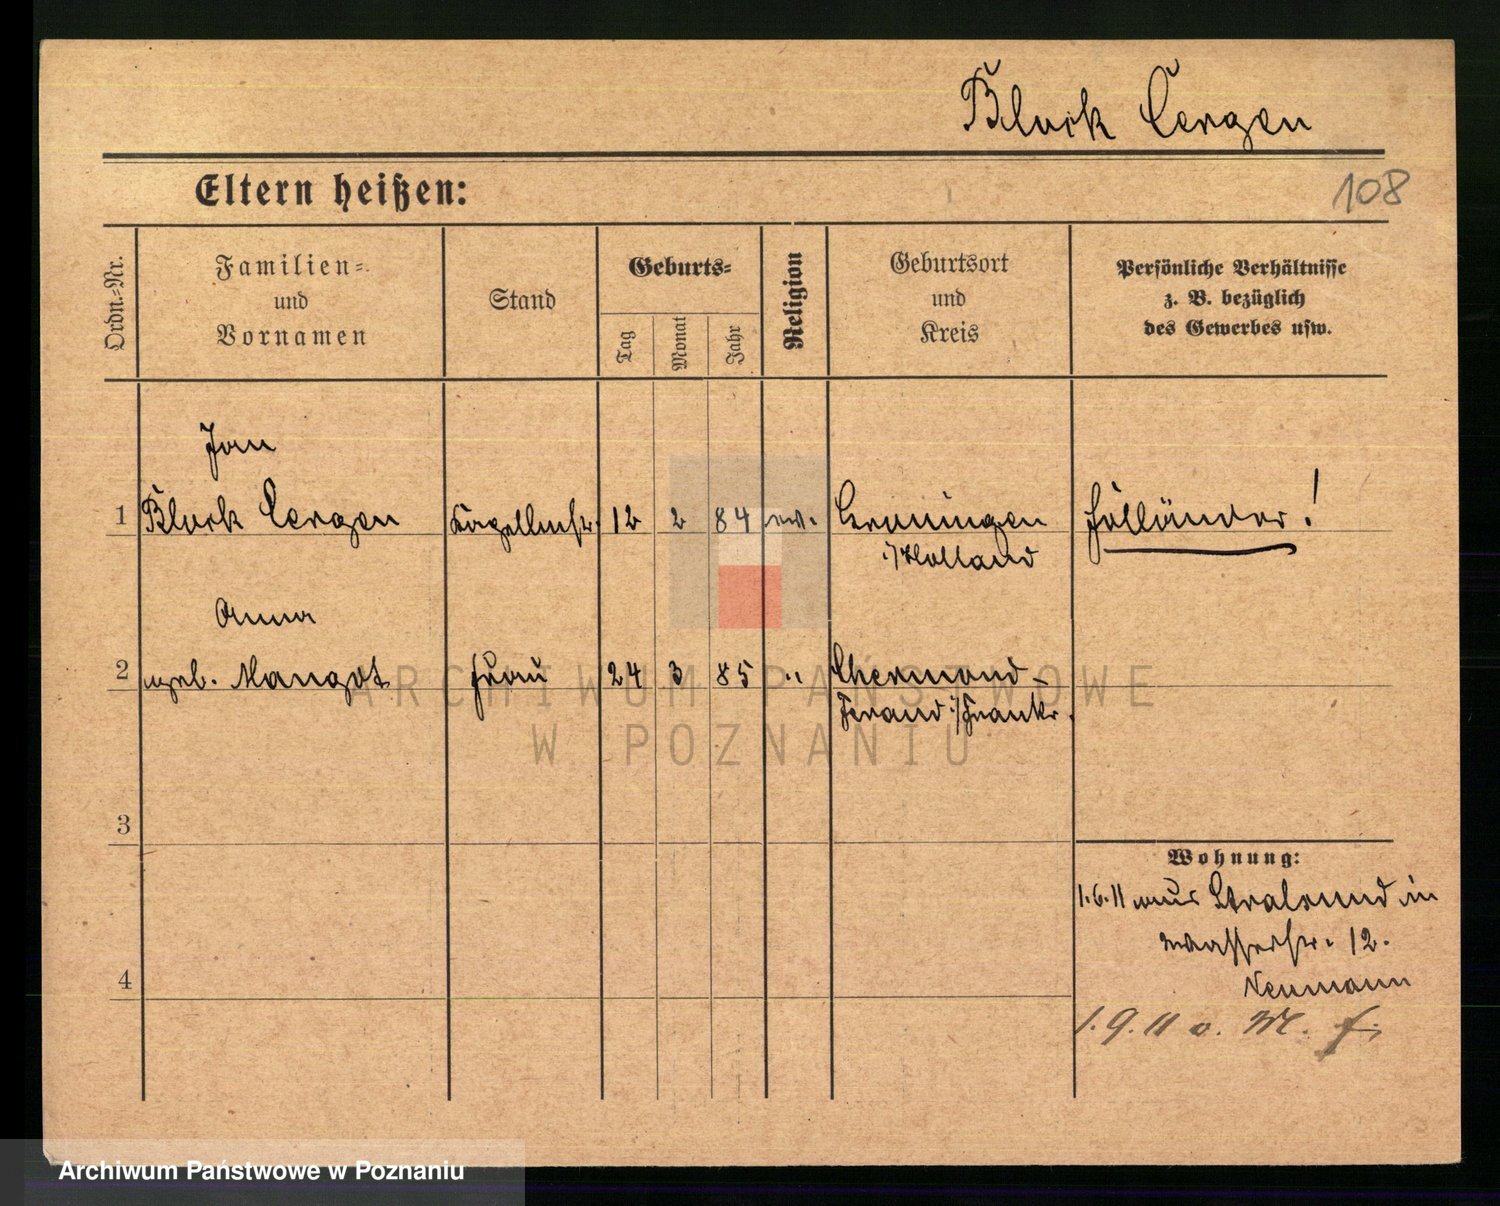 Block Cergen
Eltern heißen:
108
Ordn.-Nr.
Familien-
und
Vornamen
Stand
Geburts-
Tag
Monat
Jahr
Religion
Geburtsort
und
Kreis
Persönliche Verhältnisse
z. B. bezüglich
des Gewerbes usw.
Jan
1 Block Cergen Kapellmstr. 12 2 84 ev. Groningen Holländer!
i/Holland
Anna
2 geb. Mangot Frau 24 3 85 " Chermond-
Ferand i/Frankr.
3
Wohnung:
1.6.11 aus Stralsund in
Wasserstr. 12.
4
Neumann
1.9.11 v. M. f.
ARCHIWUM PAŃSTWOWE
W POZNANIU
Archiwum Państwowe w Poznaniu